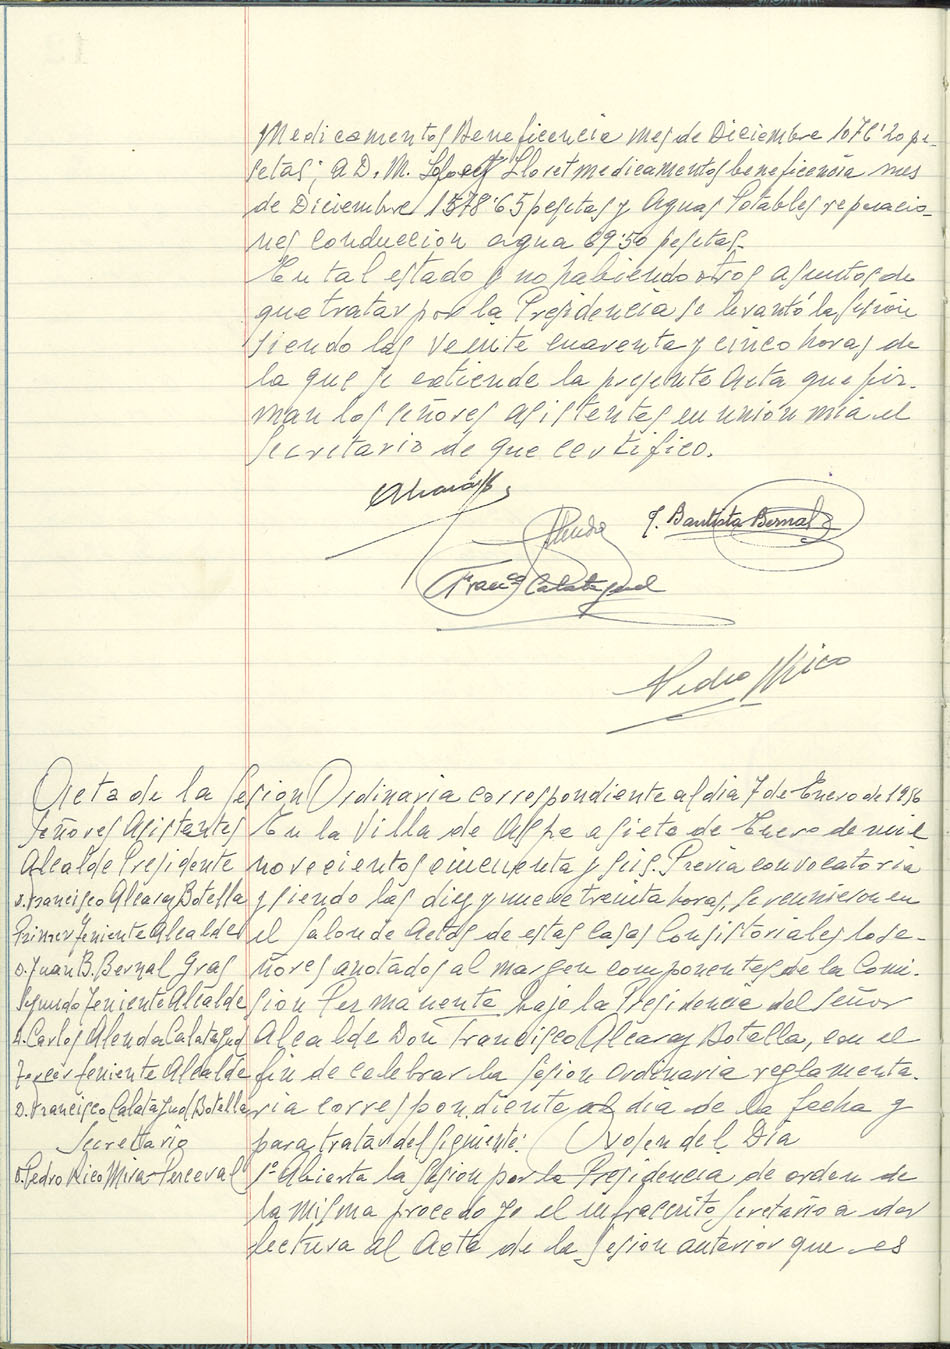 Medicamentos Beneficencia mes de Diciembre 1076'20 pe-
setas; a D. M. Lloret medicamentos beneficencia mes
de Diciembre 1578'65 pesetas y Aguas Potables reparacio-
nes conduccion agua 69'50 pesetas.
En tal estado y no habiendo otros asuntos de
que tratar por la Presidencia se levantó la sesión
siendo las veinte cuarenta y cinco horas de
la que se extiende la presente Acta que fir-
man los señores asistentes en union mia el
Secretario de que certifico.
Alcaraz
J. Bautista Bernal
Alenda
Franco Calatayud
Pedro Rico
Acta de la Sesion Ordinaria correspondiente al dia 7 de Enero de 1956
Señores Asistentes
Alcalde Presidente
D. Francisco Alcaraz Botella
Primer Teniente Alcalde
D. Juan B. Bernal Gras
Segundo Teniente Alcalde
D. Carlos Alenda Calatayud
Tercer Teniente Alcalde
D. Francisco Calatayud Botella
Secretario
D. Pedro Rico Mira-Perceval
En la Villa de Aspe a siete de Enero de mil
novecientos cincuenta y seis. Previa convocatoria
y siendo las diez y nueve treinta horas, se reunieron en
el Salon de Actos de estas Casas Consistoriales los se-
ñores anotados al margen componentes de la Comi-
sion Permanente bajo la Presidencia del Señor
Alcalde Don Francisco Alcaraz Botella, con el
fin de celebrar la sesion ordinaria reglamenta-
ria correspondiente al dia de la fecha y
para tratar del siguiente: Orden del Dia
1º Abierta la sesion por la Presidencia de orden de
la misma procedo yo el infrascrito Secretario a dar
lectura al Acta de la sesion anterior que es